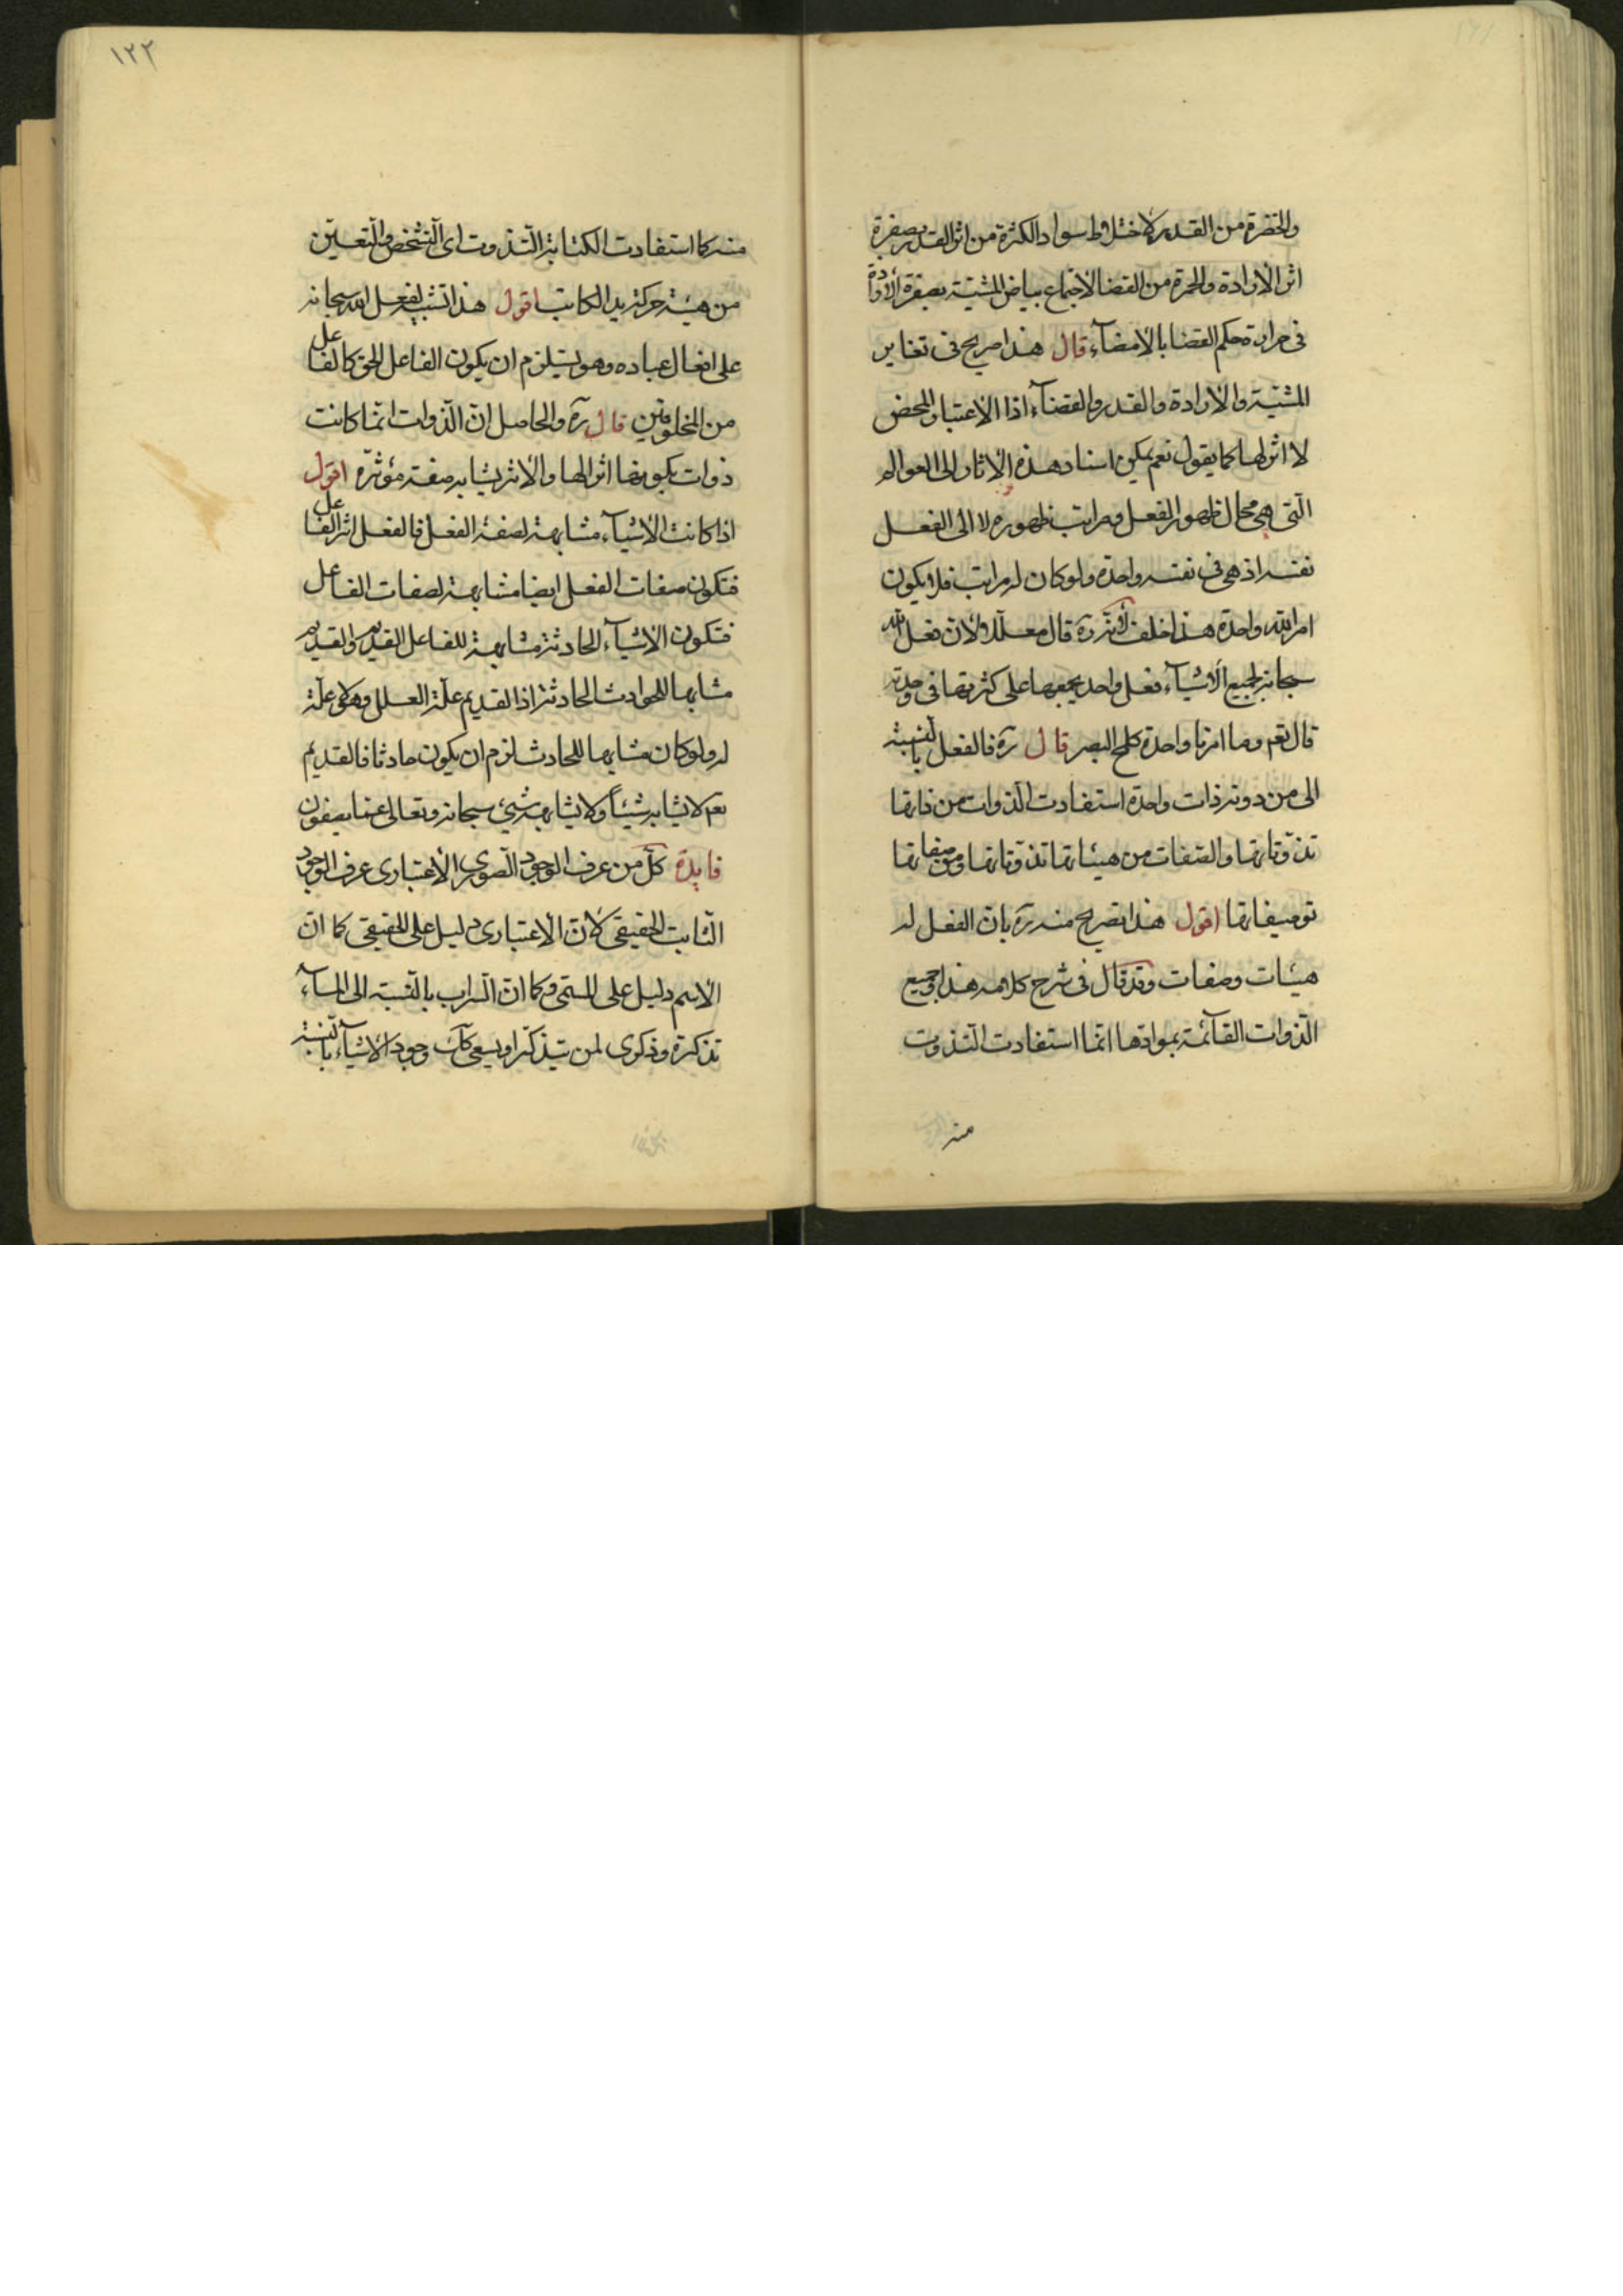 والخضرة من القدر لاختلاط سواد الكثرة من اثر القدر بصفرة
اثر الارادة والحمرة من القضا لاجتماع بياض المشیة بصفرة الارادة
فى حرارة حكم القضا بالامضآء قال هذا صريح فى تغاير
المشية والارادة والقدر والقضآء اذ الاعتبار المحض
لا اثر لها كما يقول نعم يمكن اسناد هذه الاثار الى العوالم
التى هى محال ظهور الفعل ومراتب ظهوره لا الى الفعل
نفسه اذ هى فى نفسه واحدة ولو كان له مراتب فلا يكون
امر الله واحدة هذا خلف قال معللا ولان فعل الله
سبحانه لجميع الاشيآء فعل واحد يجمعها على كثرتها فى وحدته
قال تعم وما امرنا واحدة كلمح البصر قال ره فالفعل بالنسبة
الى من دونه ذات واحدة استفادت الذوات من ذاتها
تذوتاتها والصفات من هيئاتها تذوتاتها وصفاتها
توصيفاتها اقول هذا تصريح منه ره بان الفعل له
هيئات وصفات وقد قال فى شرح كلامه هذا وجميع
الذوات القآئمة بموادها انما استفادت التذوت
منه
١٢٢
منه كما استفادت الكتابة التذوت اى التشخص والتعين
من هيئة حركة يد الكاتب اقول هذا تشبيه لفعل الله سبحانه
على افعال عباده وهو يستلزم ان يكون الفاعل الحق كالفاعل
من المخلوقين قال ره والحاصل ان الذوات انما كانت
ذوات بكونها اثرا لها والاثر يشابه صفة مؤثره اقول
اذا كانت الاشيآء مشابهة لصفة الفعل فالفعل اثر الفاعل
فتكون صفات الفعل ايضا مشابهة لصفات الفاعل
فتكون الاشيآء الحادثة مشابهة للفاعل القديم والقديم
مشابها للحوادث الحادثة اذ القديم علة العلل وهو لا علة
له ولو كان مشابها للحادث لزم ان يكون حادثا فالقديم
تعم لا يشابه شيئا ولا يشابهه شىء سبحانه وتعالى عما يصفون
فايدة كل من عرف الوجود الصورى الاعتبارى عرف الوجود
الثابت الحقيقى لان الاعتبارى دليل على الحقيقى كما ان
الاسم دليل على المسمى وكما ان السراب بالنسبة الى المآء
تذكرة وذكرى لمن يتذكر او يسعى كك وجود الاشيآء بالنسبة